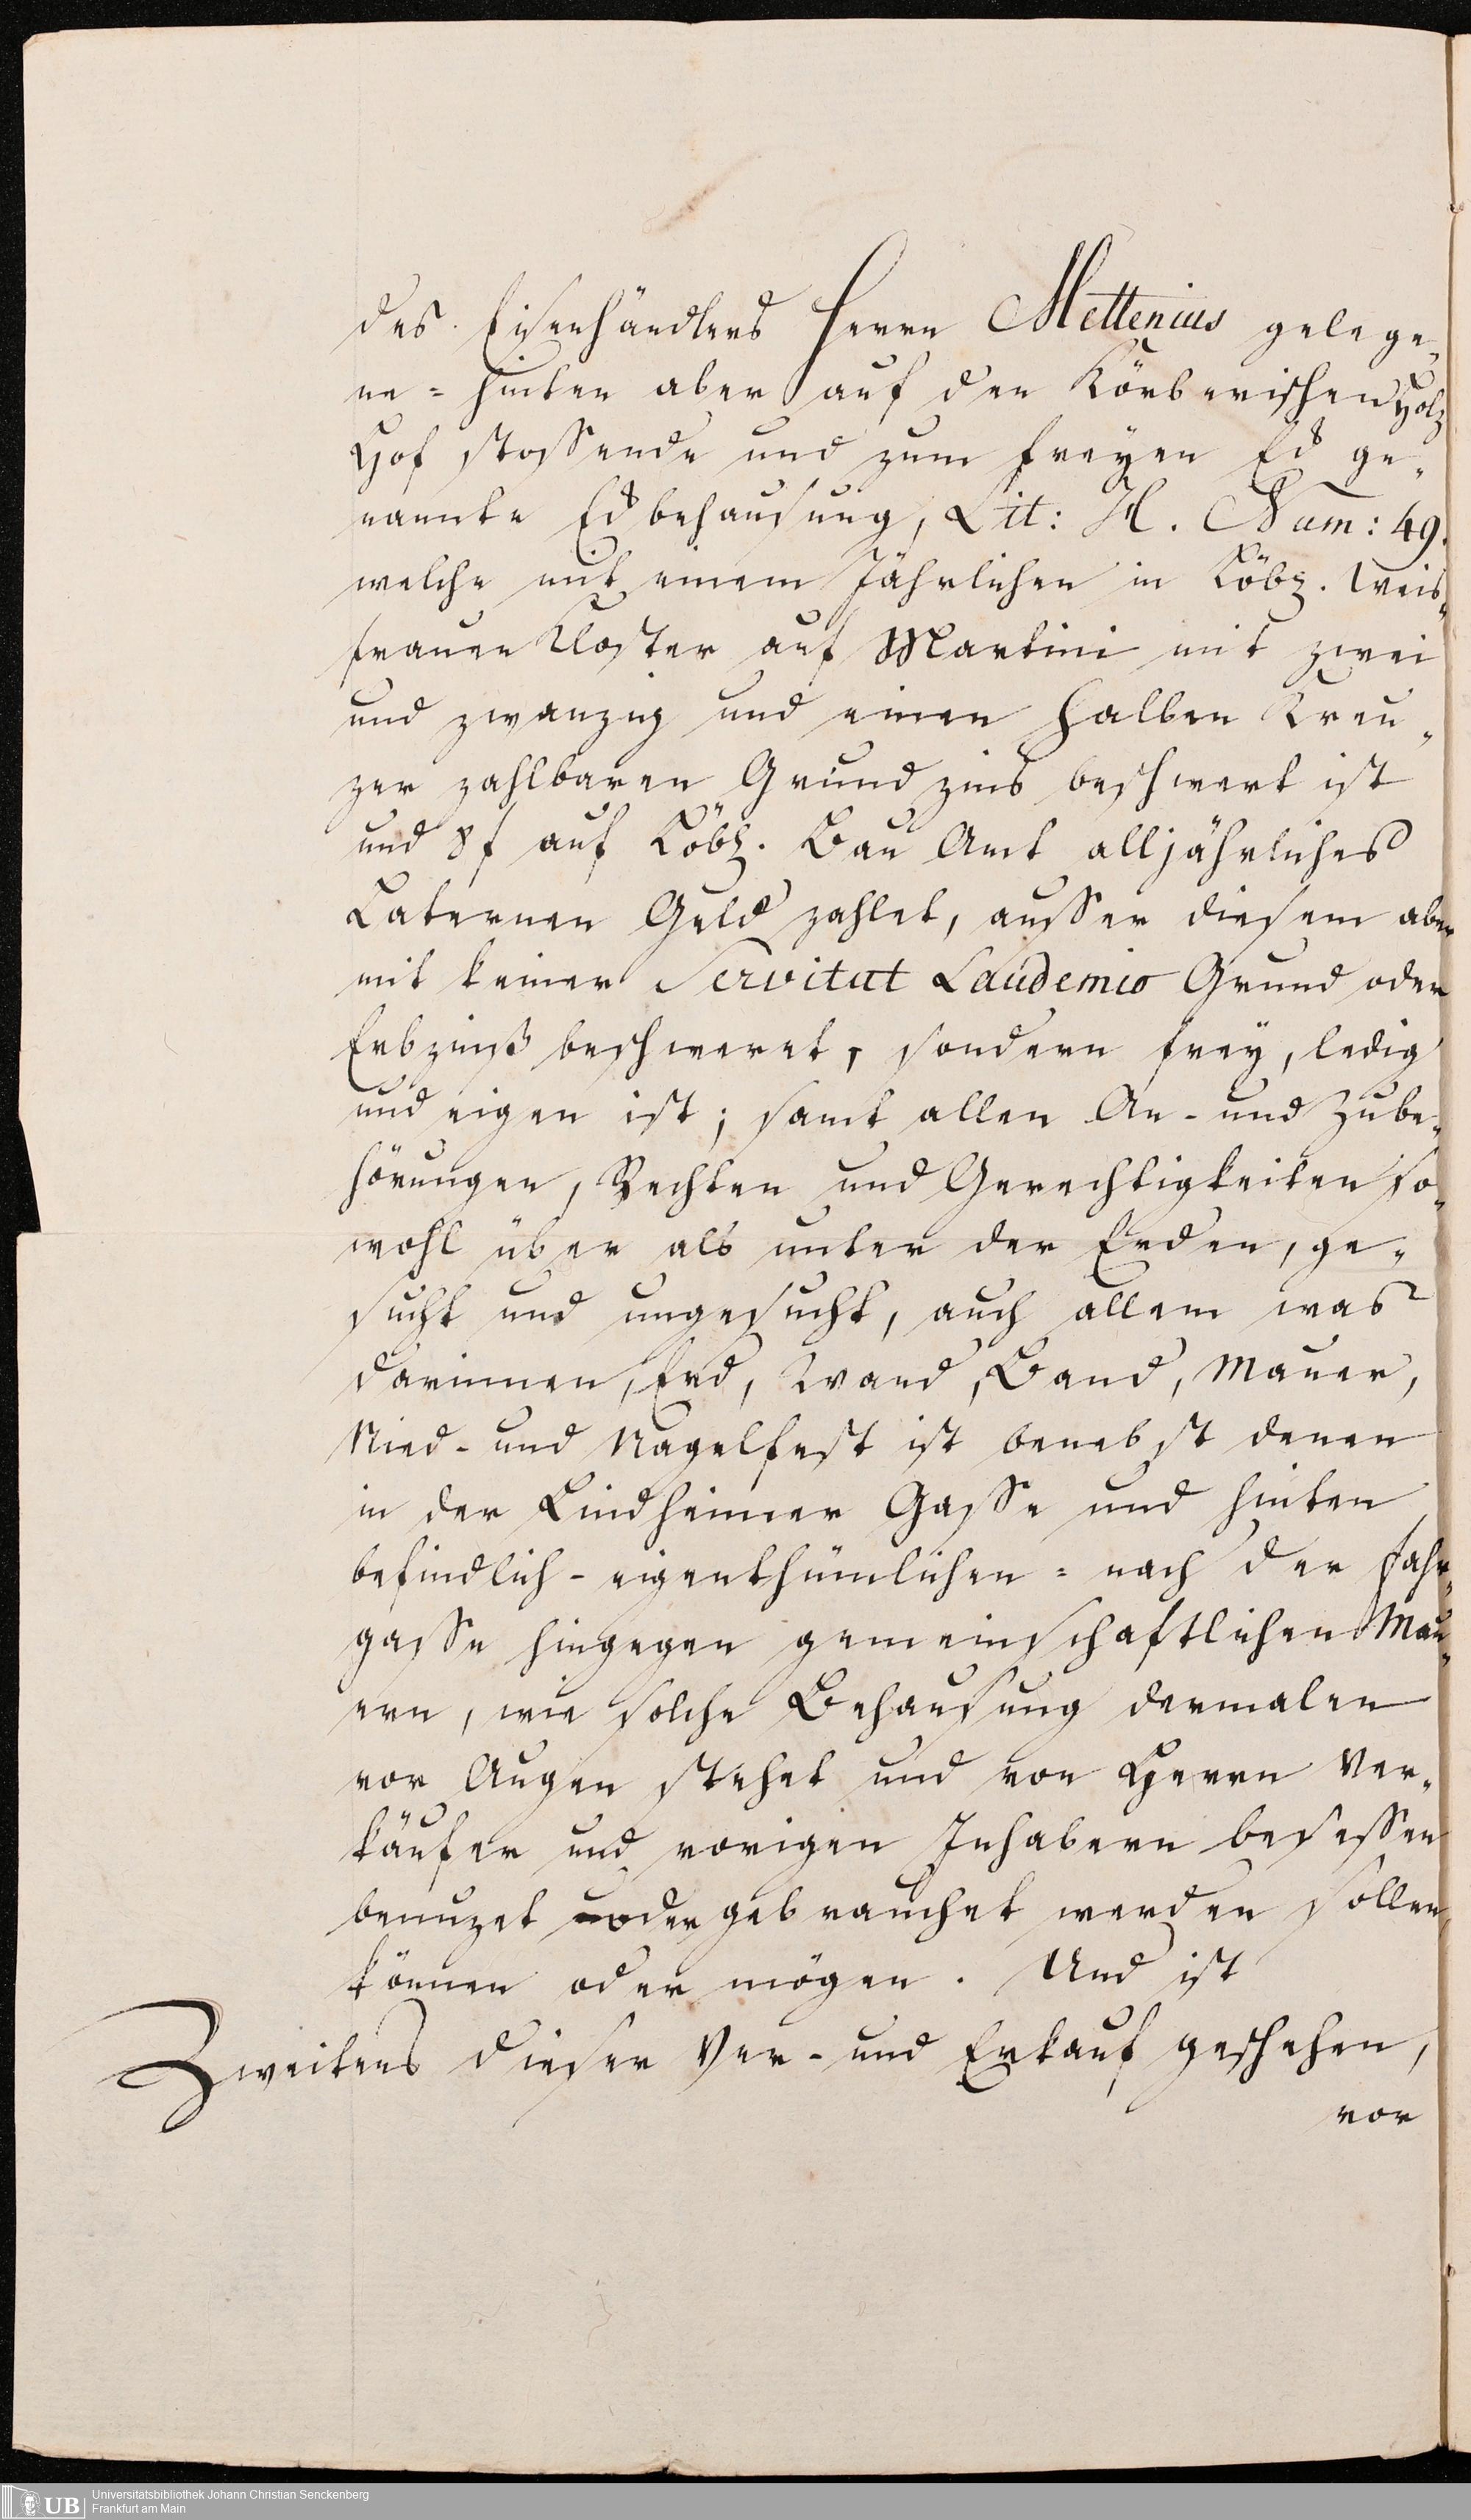 des Eisenhändlers Herrn Mettenius gelege„
ne = hinten aber auf den Körberischen Holz
Hof stossende und zum freyen Eck ge„
nannte Eckbehausung, Lit: H. Num: 49.
welche mit einem Jährlichen in Löbl. Weis„
frauen Kloster auf Martini mit zwei
und zwanzig und einen halben Kreu„
zer zahlbaren Grundzins beschwert ist
und 8 f auf Löbl. Bau Amt alljährliches
Laternen Geld zahlet, ausser diesem aber
mit keiner Servitut Laudemio Grund oder
Erbzinß beschweret, sondern frey, ledig
und eigen ist; samt allen An- und Zube„
hörungen, Rechten und Gerechtigkeiten so„
wohl über als unter der Erden, ge„
sucht und ungesucht, auch allem was
darinnen, Erd, Wand, Band, Mauer,
Nied- und Nagelfest ist benebst denen
in der Lindheimer Gasse und hinten
befindlich-eigenthümlichen = nach der Fahr„
gasse hingegen gemeinschaftlichen Mau„
ern, wie solche Behausung dermalen
vor Augen stehet und von Herrn Ver„
käufer und vorigen Inhabern besessen
benuzet oder gebrauchet werden sollen
können oder mögen. Und ist
Zweitens dieser Ver- und Erkauf geschehen,
vor
UB Universitätsbibliothek Johann Christian Senckenberg
Frankfurt am Main